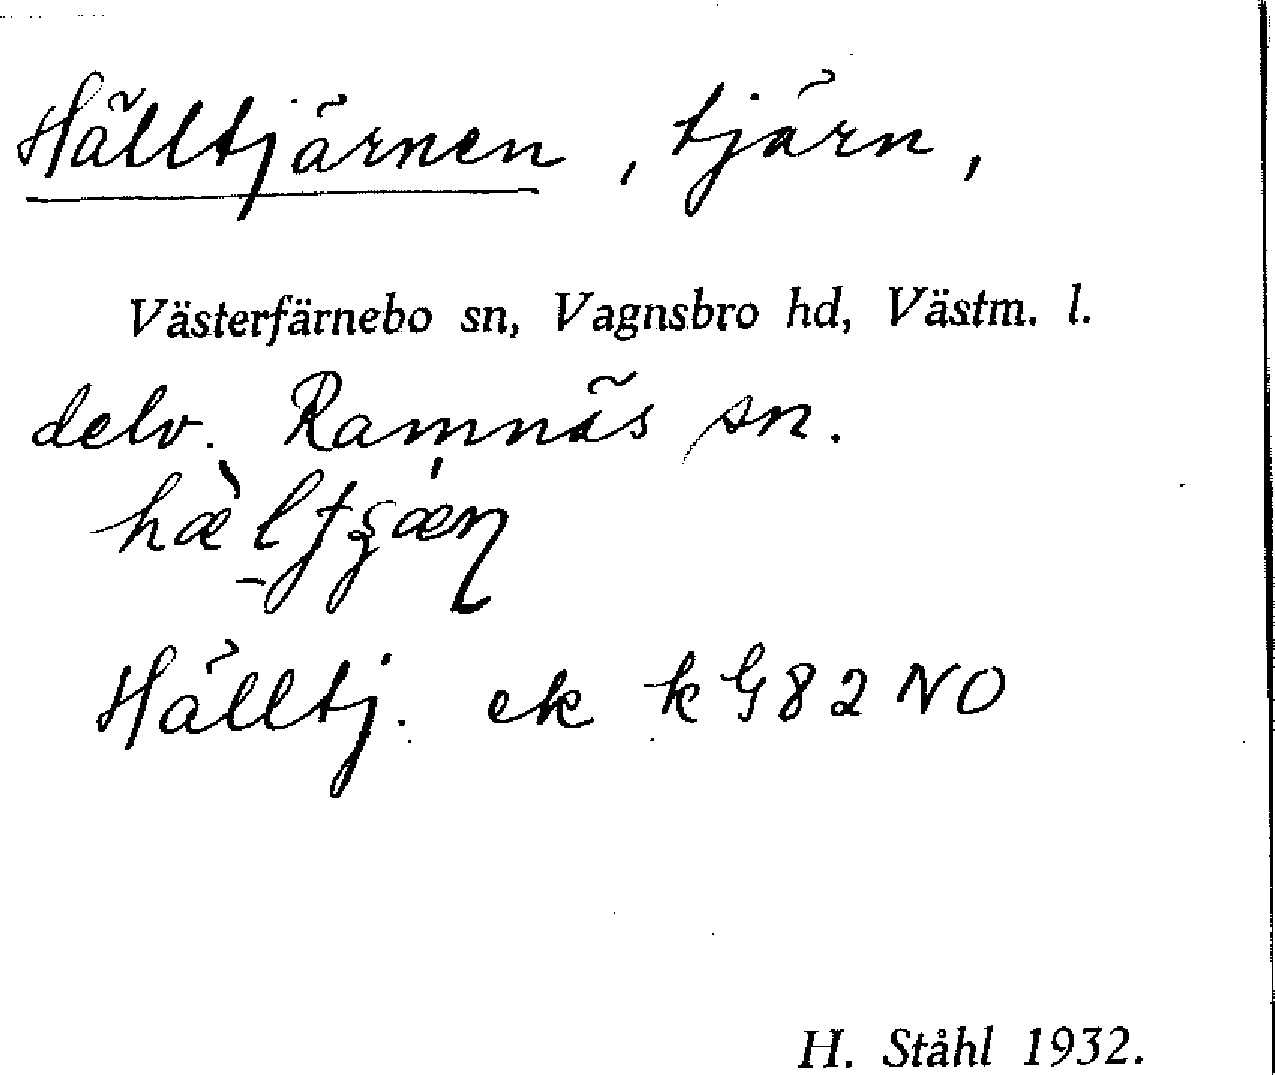 Hälltjärnen, tjärn,
Västerfärnebo sn, Vagnsbro hd, Västm. l.
delv. Ramnäs sn.
Hälltj. ek kG82 NO
H. Ståhl 1932.